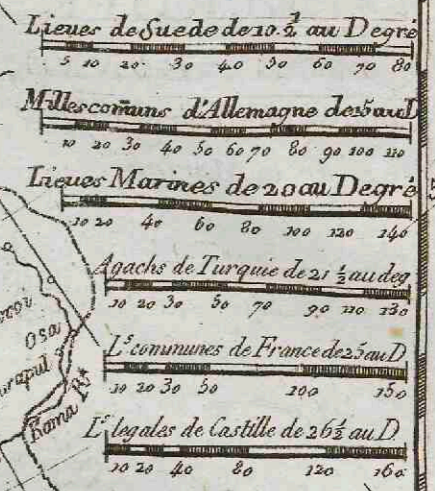 Lieues de Suede de 10. ½ au Degré
5 10 20 30 40 50 60 70 80
Milles comuns d'Allemagne de 15 au D
10 20 30 40 50 60 70 80 90 100 110
Lieues Marines de 20 au Degré
10 20 40 60 80 100 120 140
Agachs de Turquie de 21 ½ au deg
10 20 30 50 70 90 110 130
Ls. communes de France de 25 au D
10 20 30 50 100 150
Ls. legales de Castille de 26½ au D
10 20 40 80 120 160
Osa
Kama R.